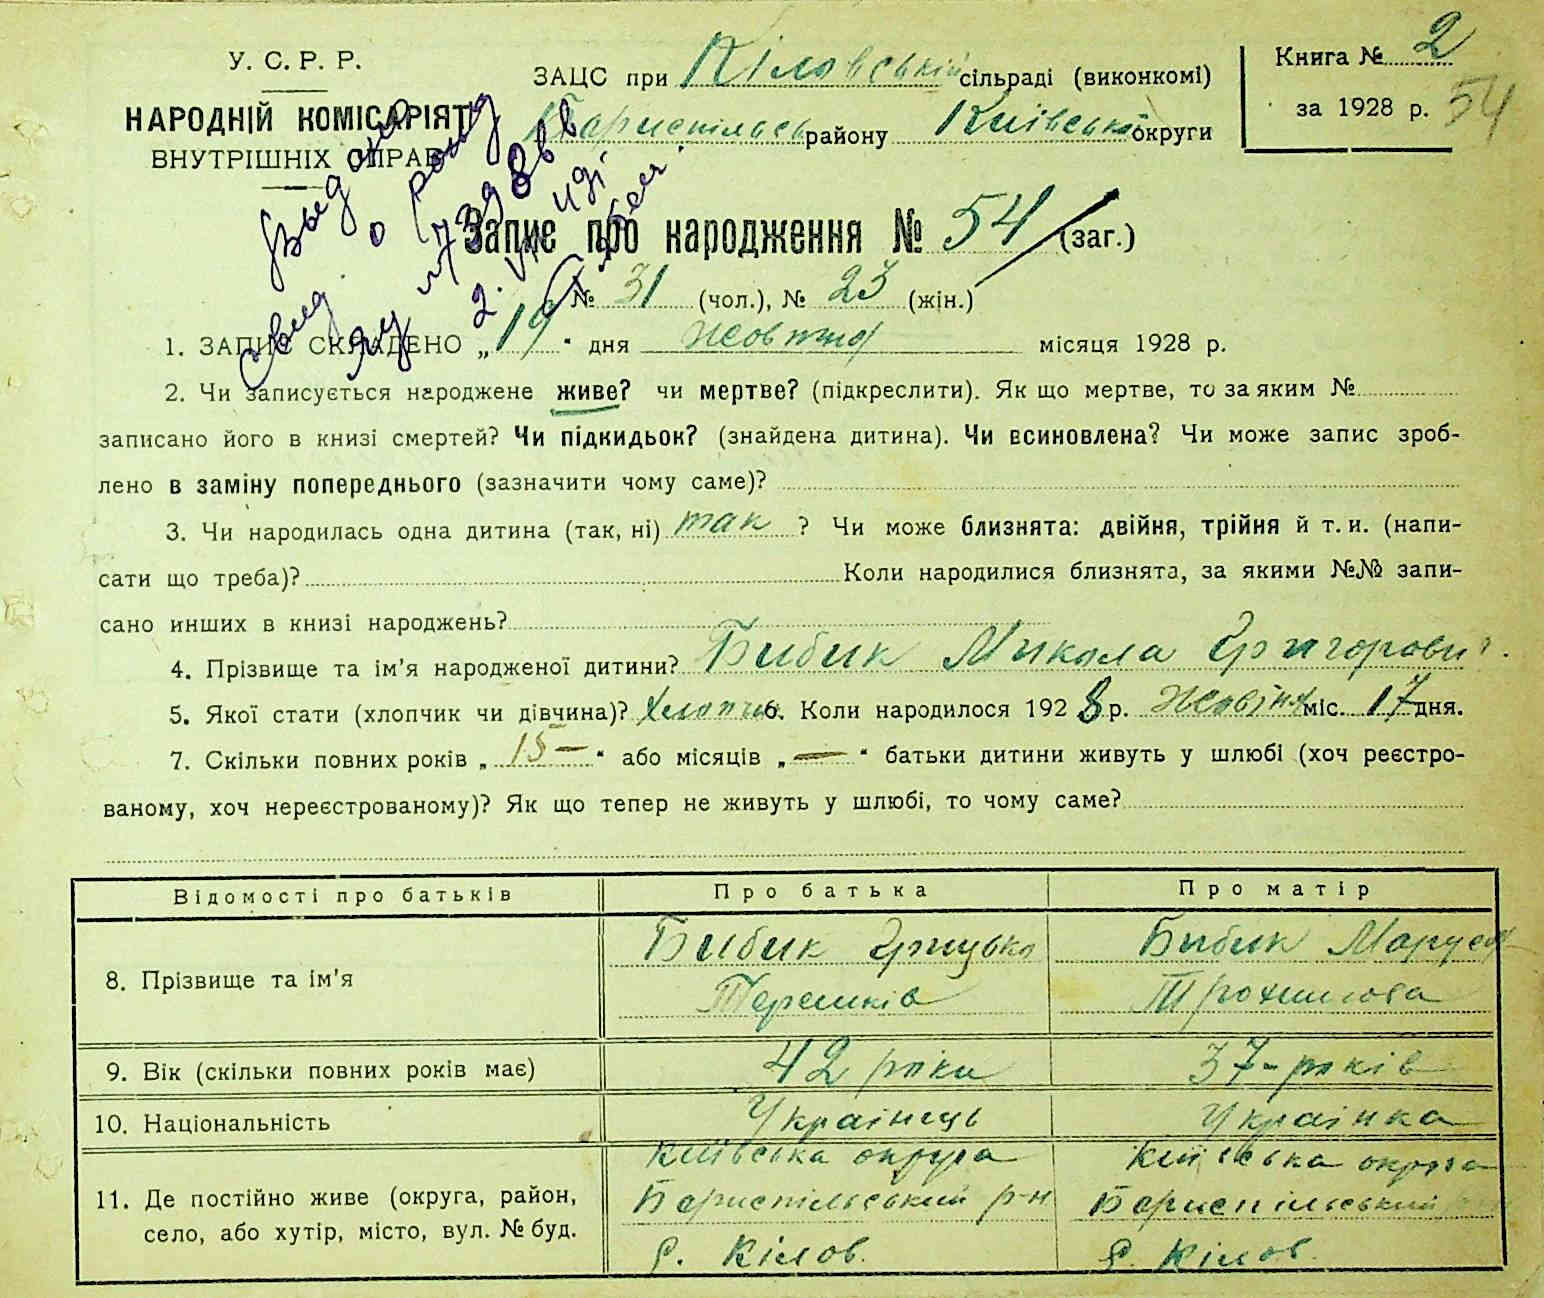 У. С. Р. Р.
НАРОДНІЙ КОМІСАРІЯТ
ВНУТРІШНІХ СПРАВ
ЗАЦС при Кіловській сільраді (виконкомі)
Бориспільсь району Київської округи
Книга № 2
за 1928 р. 54
Запис про народження № 54 (заг.)
№ 31 (чол.), № 23 (жін.)
1. ЗАПИС СКЛАДЕНО „ 19 " дня жовтня місяця 1928 р.
2. Чи записується народжене живе? чи мертве? (підкреслити). Як що мертве, то за яким №
записано його в книзі смертей? Чи підкидьок? (знайдена дитина). Чи всиновлена? Чи може запис зроб-
лено в заміну попереднього (зазначити чому саме)?
3. Чи народилась одна дитина (так, ні) так ? Чи може близнята: двійня, трійня й т. и. (напи-
сати що треба)? Коли народилися близнята, за якими №№ запи-
сано инших в книзі народжень?
4. Прізвище та ім'я народженої дитини? Бибик Микола Григорович
5. Якої стати (хлопчик чи дівчина)? Хлопчик 6. Коли народилося 1928 р. Жовтня міс. 17 дня.
7. Скільки повних років „ 15 — " або місяців „ — " батьки дитини живуть у шлюбі (хоч реєстро-
ваному, хоч нереєстрованому)? Як що тепер не живуть у шлюбі, то чому саме?
Відомості про батьків Про батька Про матір
8. Прізвище та ім'я
Бибик Грицько
Терешків
Бибик Маруся
Трохимова
9. Вік (скільки повних років має) 42 роки 37-років
10. Національність Украінець Украінка
11. Де постійно живе (округа, район,
село, або хутір, місто, вул. № буд.
Київська округа
Бориспільський р-н
с. Кілов.
Київська округа
Бориспільський
с. Кілов.